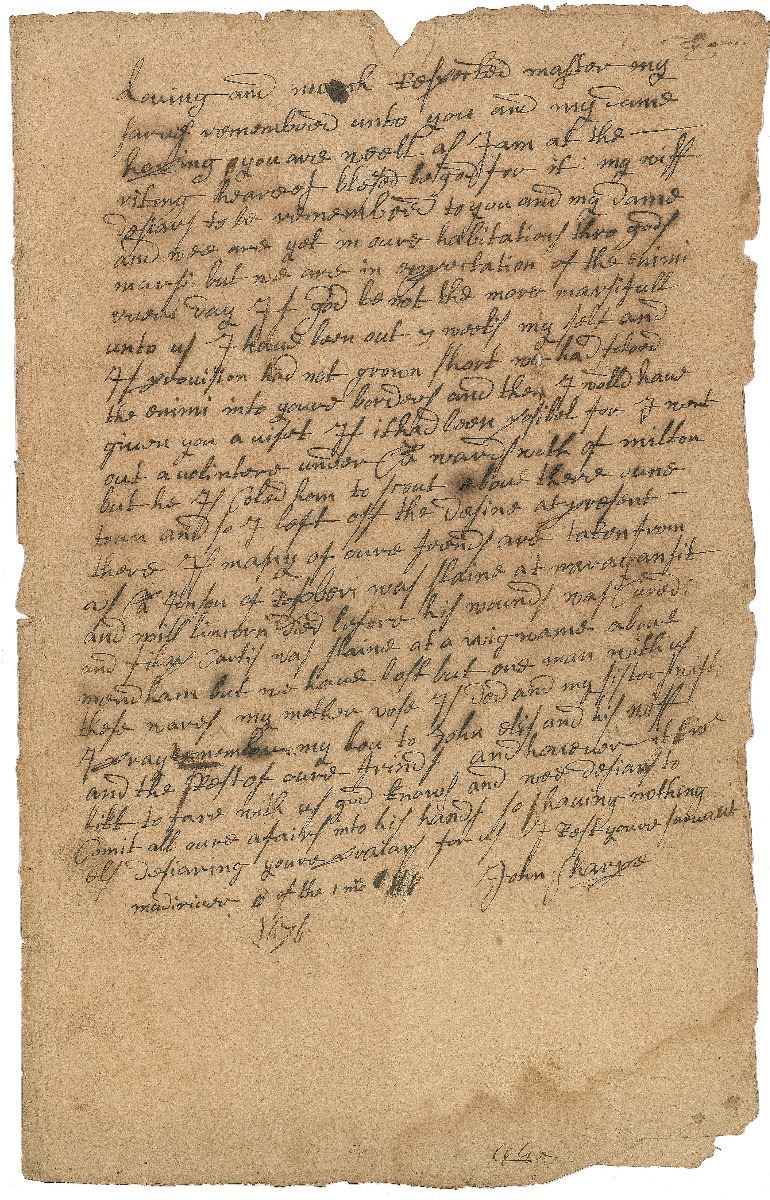 Loving and much Respected master my
sarvis remembred unto you and my dame
hopeing you are well as I am at the
riting heareof blesed be god for it my wiff
desiars to be remembred to you and my dame
and wee are yet in oure habitations thro gods
marsi but we are in expectation of the enimi
everi day If god be not the more marsifull
unto us I have been out 7 weeks my self and
If provision had not grown short we had folood
the enimi into youre borders and then I would have
given you a viset If it had been posibel for I went
out a volintere under Capt wardswoth of milton
but he Is coled hom to scout about there oune
town and so I left off the desine at present
there Is many of oure frends are taken from
us Capt Jonson of Rosberi was slaine at naragansit
and will Lincorn died before his wounds was cured
and filep Curtis was slaine at a wigname about
mendham but we have lost but one man with us
these wares my mother rose Is ded and my sister
I pray remember my lov to John elis and his wiff
and the Rest of oure frinds and however it Is
likt to fare with us god knows and wee desiars to
comit all oure afairs into his hands so having nothing
els desiaring youre praiars for us I rest youre servant
John Sharpe
mudiriver of the 1 mo
1676